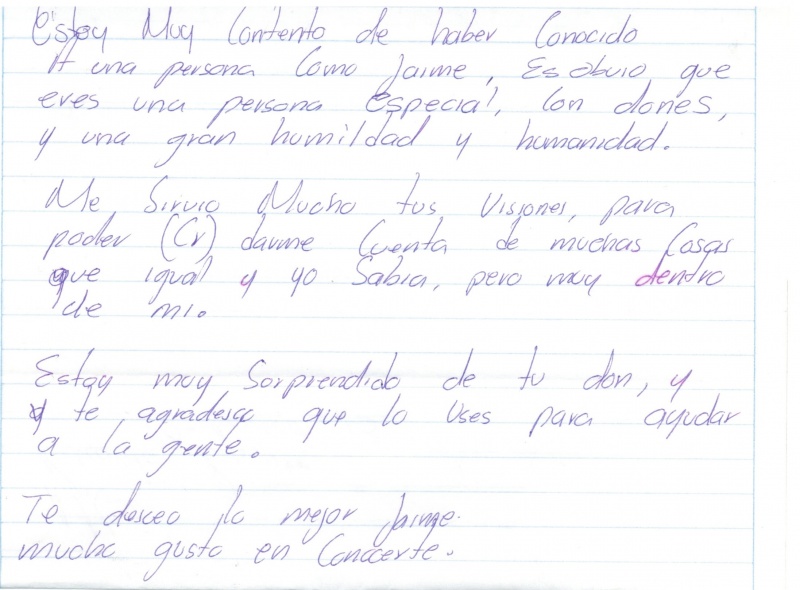 Estoy Muy Contento de haber Conocido
A una persona Como Jaime, Es obvio que
eres una persona Especial, Con dones,
y una gran humildad y humanidad.
Me Sirvio Mucho tus Visiones, para
poder (Cr) darme Cuenta de muchas Cosas
que igual y yo Sabia, pero muy dentro
de mi.
Estoy muy Sorprendido de tu don, y
y te agradesco que lo Uses para ayudar
a la gente.
Te deseo lo mejor Jaime.
mucho gusto en Conocerte.